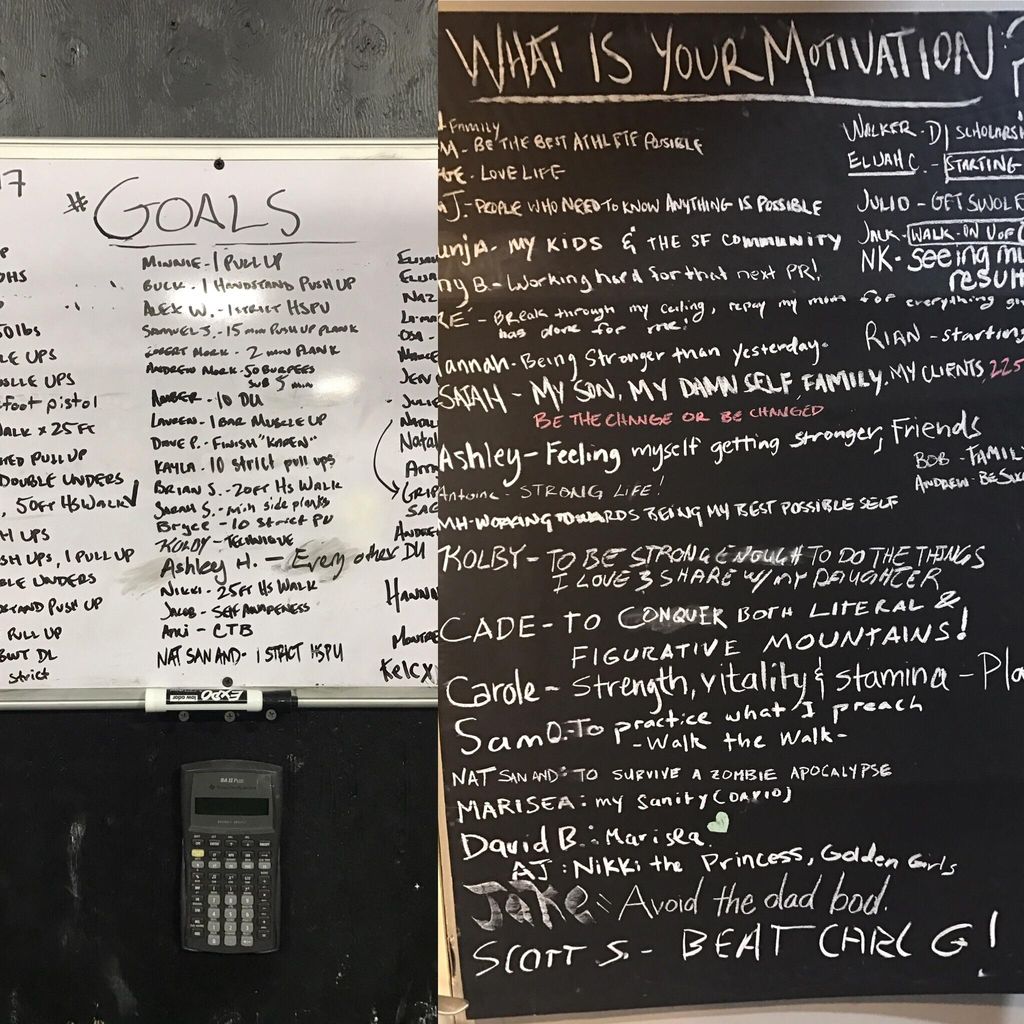 17
# GOALS
P
DHS
50lbs
LE UPS
SCLE UPS
foot pistol
WALK x 25FT
TED PULLUP
DOUBLE UNDERS
, 50FT HS WALK ✓
H UPS
SH UPS, 1 PULL UP
BLE UNDERS
DSTAND PUSH UP
PULL UP
BWT DL
strict
MINNIE - 1 PULL UP
BUCK - 1 HANDSTAND PUSH UP
ALEX W. - 1 STRICT HSPU
SAMUEL J. - 15 min PUSH UP PLANK
MORK - 2 MIN PLANK
ANDREW MORK - 50 BURPEES
SUB 5 min
AMBER - 10 DU
LAUREN - 1 BAR MUSCLE UP
DAVE P. - FINISH "KAREN"
KAYLA - 10 strict pull ups
BRIAN S. - 20FT HS WALK
SARAH S. - min side planks
Bryce - 10 STRICT PU
KOLBY - TECHNIQUE
Ashley H. - Every other DU
NIKKI - 25FT HS WALK
JACOB - SELF AWARENESS
ANI - CTB
NAT SAN AND - 1 STRICT HSPU
ELIJA
NAZ
JEN
JULIE
Natal
GRIP
ANDRE
HANNA
KelCX
EXPO
low odor
BA II PLUS
WHAT IS YOUR MOTIVATION?
Family
M - BE THE BEST ATHLETE POSSIBLE
GE - LOVE LIFE
AJ - PEOPLE WHO NEED TO KNOW ANYTHING IS POSSIBLE
unja - MY KIDS & THE SF COMMUNITY
ny B - Working hard for that next PR!
RE - Break through my ceiling, repay my mom for everything she
has done for me!
annah - Being Stronger than yesterday.
SAIAH - MY SON, MY DAMN SELF, FAMILY, MY CLIENTS, 225
BE THE CHANGE OR BE CHANGED
Ashley - Feeling myself getting stronger, Friends
Antoine - STRONG LIFE!
MH - WORKING TOWARDS BEING MY BEST POSSIBLE SELF
KOLBY - TO BE STRONG ENOUGH TO DO THE THINGS
I LOVE & SHARE W/ MY DAUGHTER
CADE - TO CONQUER BOTH LITERAL &
FIGURATIVE MOUNTAINS!
Carole - Strength, vitality & stamina - Pla
Sam O. - To practice what I preach
- Walk the Walk -
NAT SAN AND: TO SURVIVE A ZOMBIE APOCALYPSE
MARISEA: my Sanity (DAVID)
David B.: Marisea
AJ: Nikki the Princess, Golden Girls
JAKE: Avoid the dad bod.
SCOTT S. - BEAT CARL G!
WALKER - D1 SCHOLARSH
ELIJAH C. - STARTING
JULIO - GET SWOLE
JACK - WALK-ON U OF C
NK - seeing my
result
RIAN - starting
BOB - FAMILY
ANDREW - BE SUC